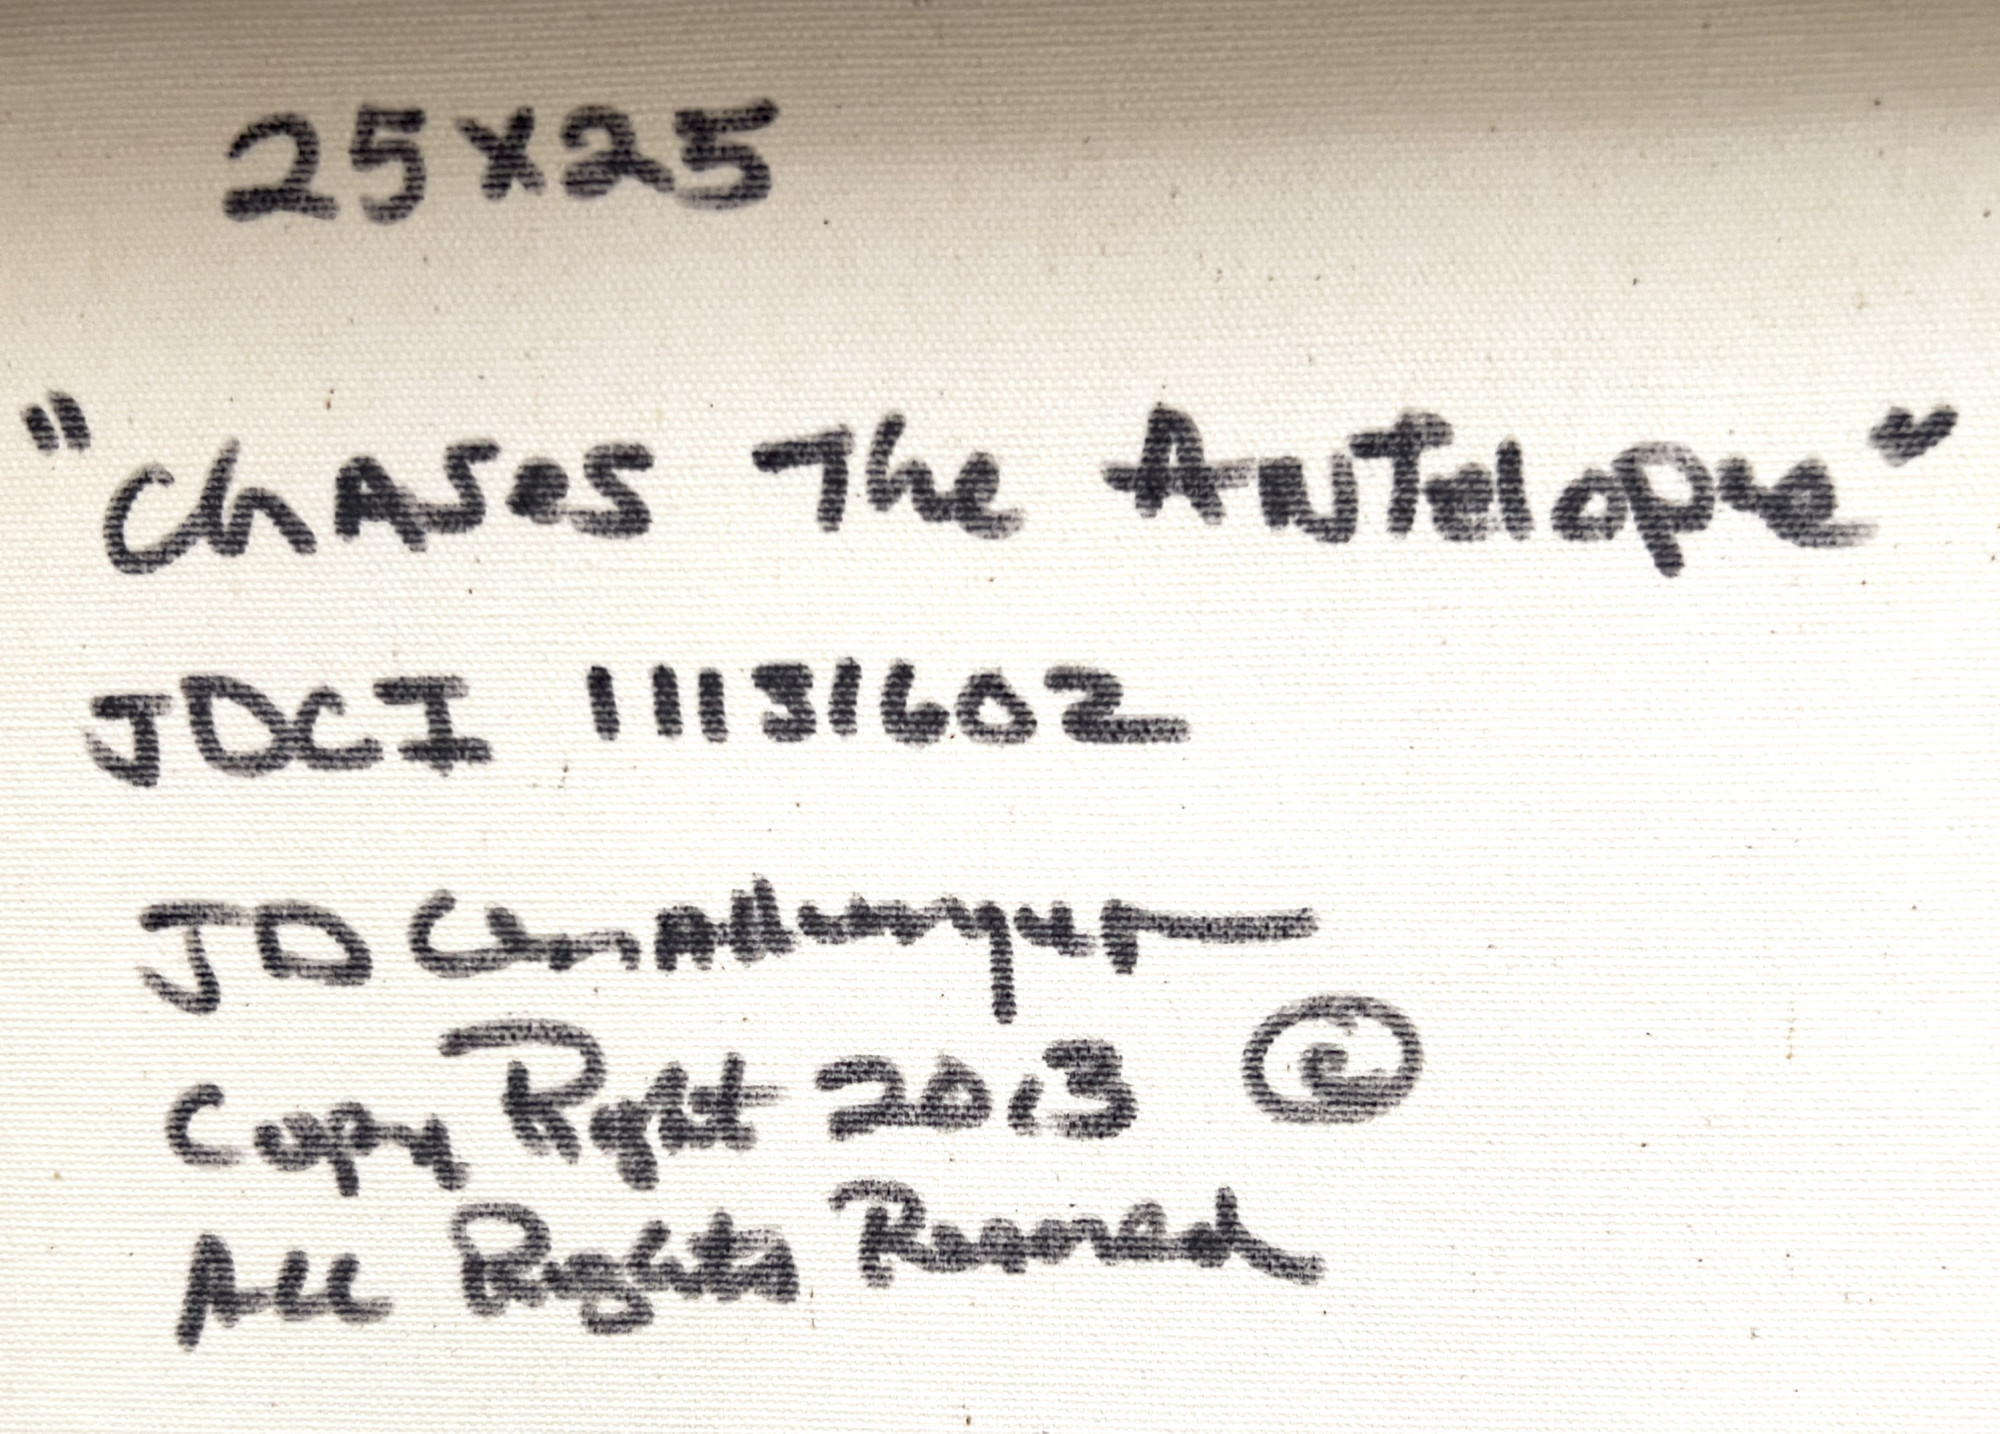 25x25
"Chases The Antelope"
JDCI 11131602
JD Challenger
Copy Right 2013 ©
All Rights Reserved